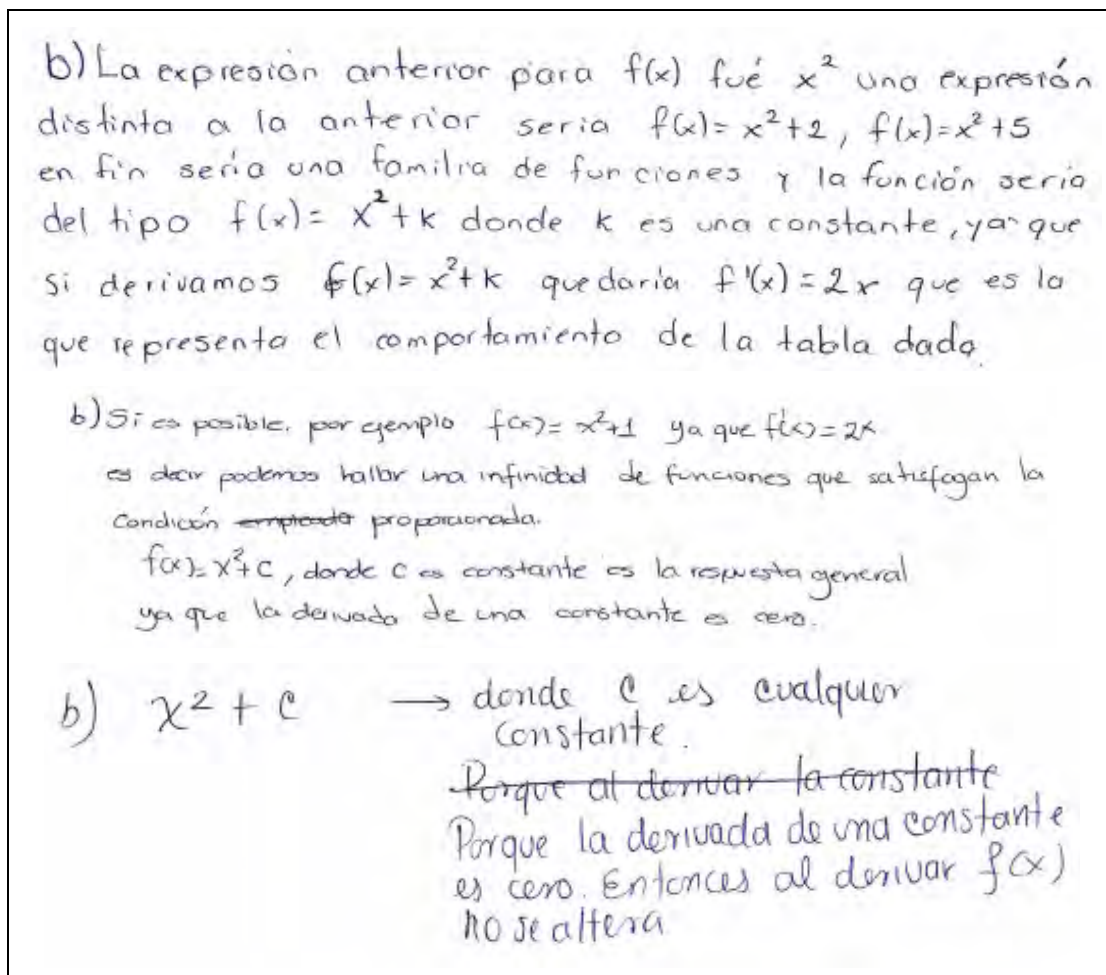 b) La expresión anterior para f(x) fué x² una expresión
distinta a la anterior seria f(x)= x²+2, f(x)=x²+5
en fin sería una familia de funciones y la función seria
del tipo f(x)= x²+k donde k es una constante, ya que
si derivamos f(x)=x²+k quedaría f'(x)=2x que es la
que representa el comportamiento de la tabla dada.
b) Si es posible, por ejemplo f(x)= x²+1 ya que f'(x)=2x
es decir podemos hallar una infinidad de funciones que satisfagan la
condición proporcionada.
f(x)= x²+c, donde c es constante es la respuesta general
ya que la derivada de una constante es cero.
b) x² + c → donde c es cualquier
constante.
Porque al derivar la constante
Porque la derivada de una constante
es cero. Entonces al derivar f(x)
no se altera